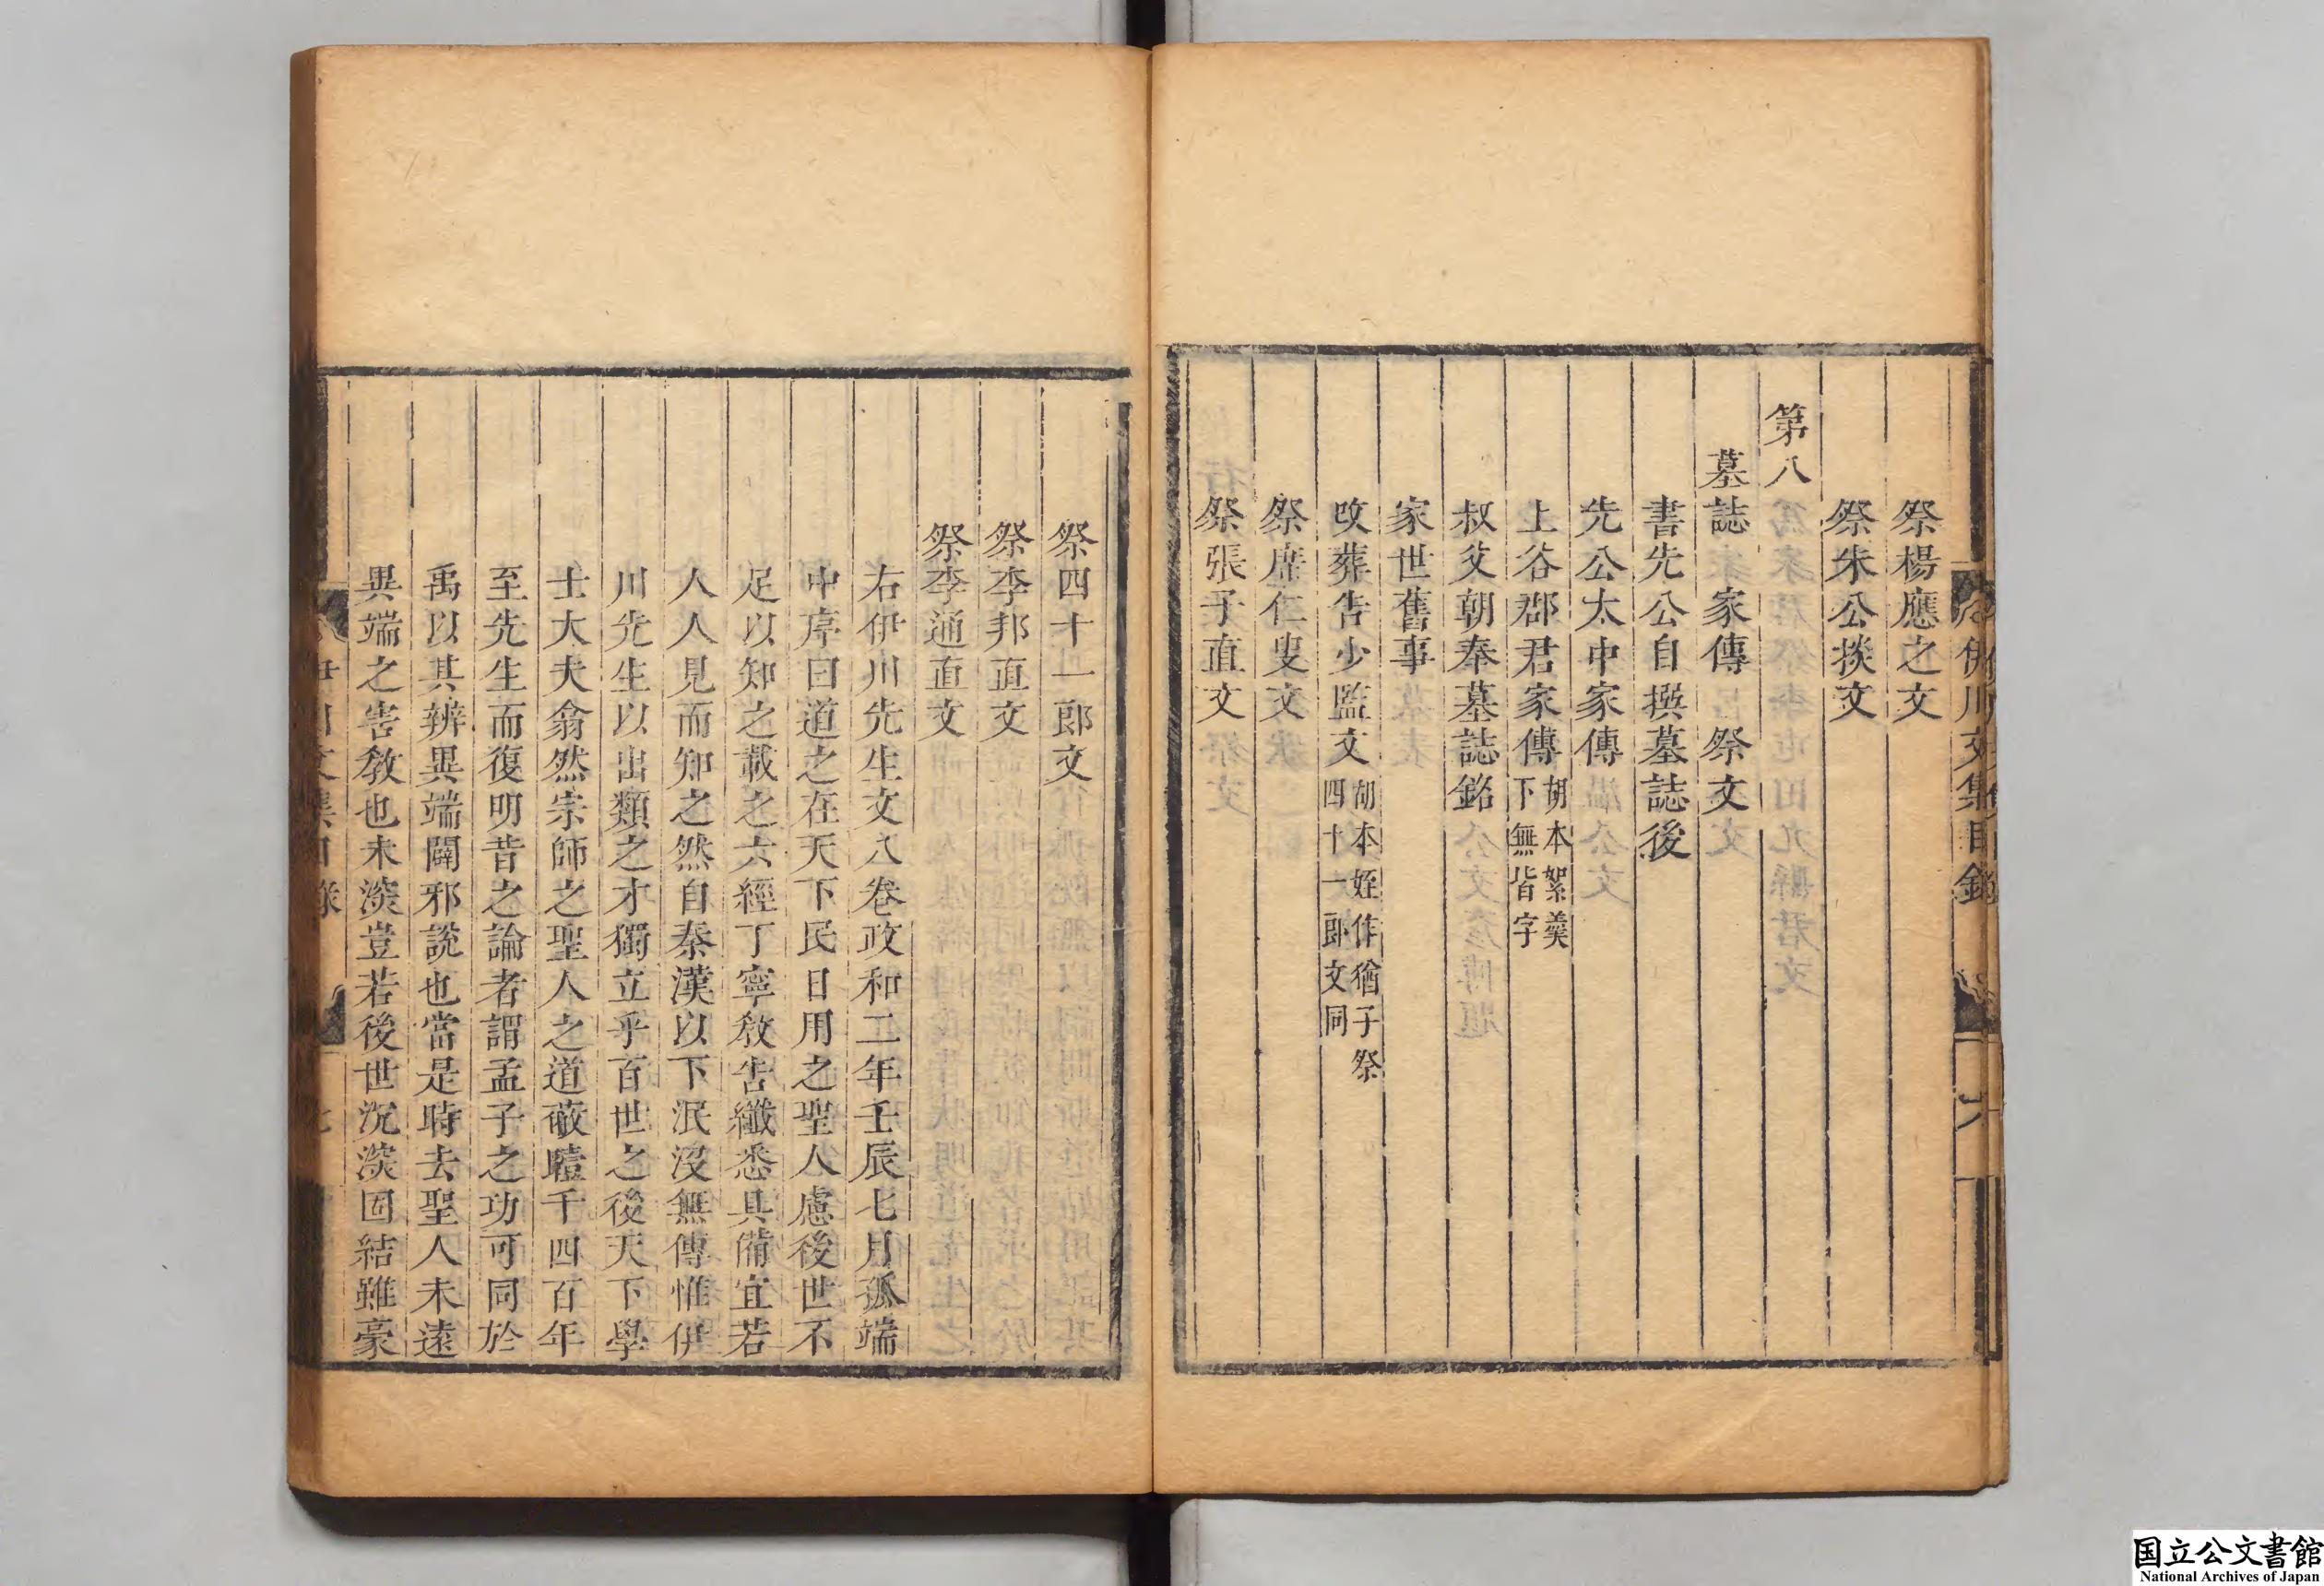 伊川文集目錄
六
祭楊應之文
祭朱公掞文
第八
墓誌　家傳　祭文
書先公自撰墓誌後
先公太中家傳
上谷郡君家傳胡本絮羹
下無皆字
叔父朝奉墓誌銘
家世舊事
改葬告少監文胡本姪作猶子祭
四十一郎文同
祭席仁叟文
祭張子直文
祭四十一郎文
祭李邦直文
祭李通直文
右伊川先生文八卷政和二年壬辰七月孤端
中序曰道之在天下民日用之聖人慮後世不
足以知之載之六經丁寧教告纖悉具備宜若
人人見而知之然自秦漢以下泯沒無傳惟伊
川先生以出類之才獨立乎百世之後天下學
士大夫翕然宗師之聖人之道蔽曀千四百年
至先生而復明昔之論者謂孟子之功可同於
禹以其辨異端闢邪說也當是時去聖人未遠
異端之害教也未深豈若後世沉深固結雖豪
国立公文書館
National Archives of Japan